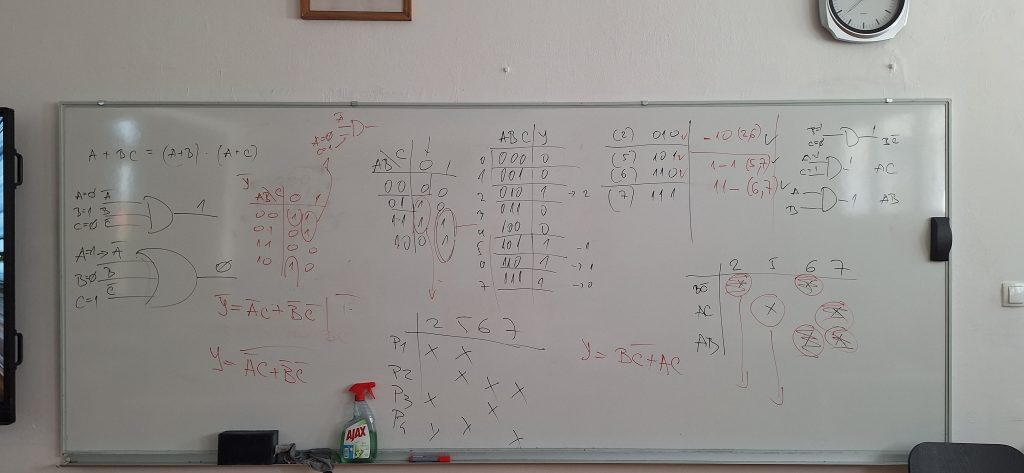 A + BC = (A+B) · (A+C)
A=0 A̅
B=1 B
C=0 C̅
1
A=1 → A̅
B=0 B̅
C=1 C̅
0
A=0 A̅
C=1
Y̅
AB\C 0 1
00 1 1
01 0 1
11 0 0
10 1 0
Y̅ = A̅C + B̅C̅
Y = A̅C + B̅C̅
AB\C 0 1
00 0 0
01 1 0
11 1 1
10 0 1
A B C Y
0 000 0
1 001 0
2 010 1 → 2
3 011 0
4 100 0
5 101 1
6 110 1
7 111 1
2 5 6 7
P1 X X
P2 X X X
P3 X X
P4 X X
(2) 010 ✓
(5) 101 ✓
(6) 110 ✓
(7) 111
-10 (2,6) ✓
1-1 (5,7) ✓
11- (6,7) ✓
B=1
C=0
1
BC̅
A=1
C=1
1
AC
A
B
1
AB
2 5 6 7
BC̅ X X
AC X X
AB X X
Y = BC̅ + AC
AJAX